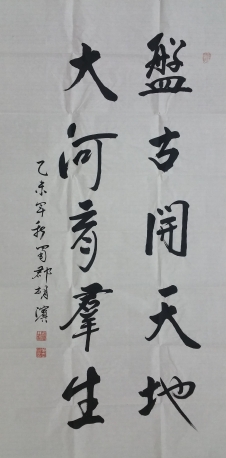 盤古開天地
大河育羣生
乙未年秋蜀郡胡濱